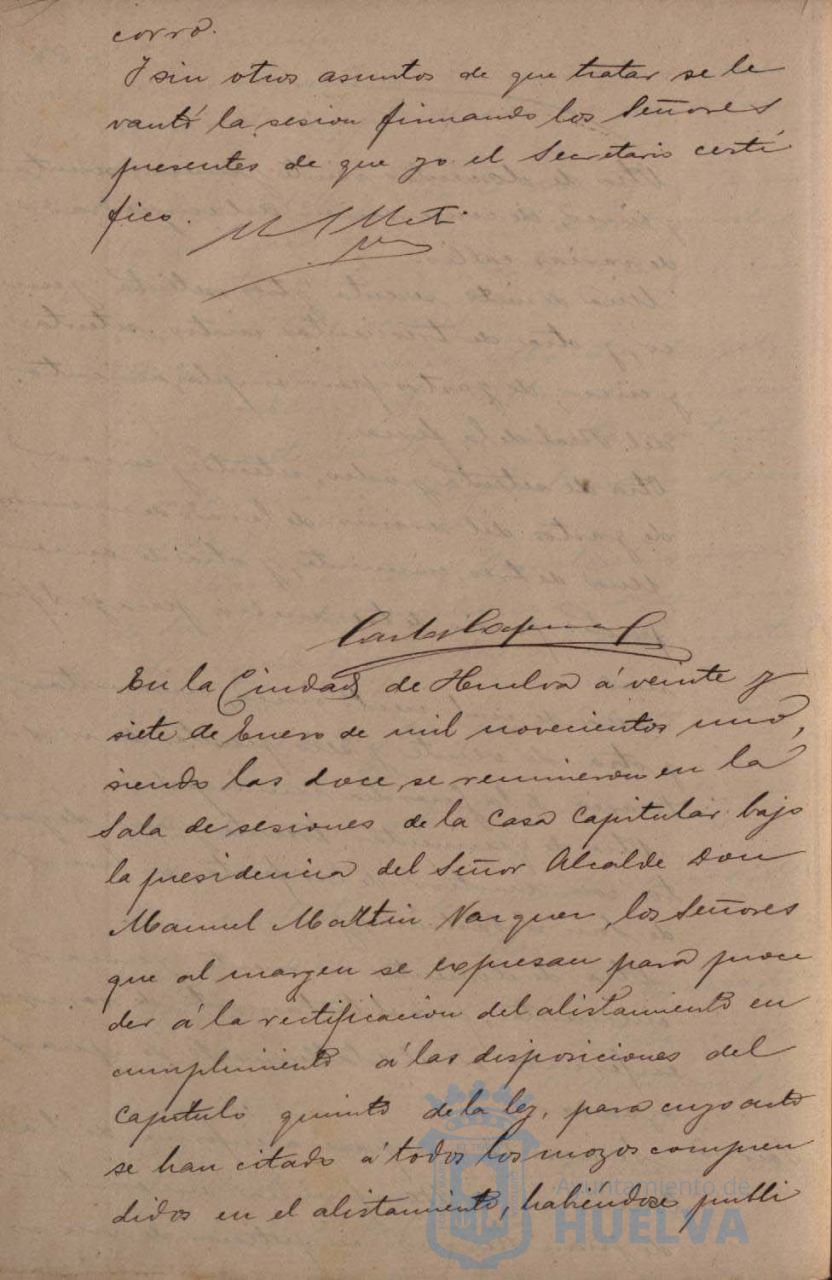 corro.
Y sin otros asuntos de que tratar se le
vantó la sesion firmando los Señores
presentes de que yo el Secretario certi
fico.
En la Ciudad de Huelva á veinte y
siete de Enero de mil novecientos uno,
siendo las doce, se reunieron en la
Sala de sesiones de la Casa Capitular bajo
la presidencia del Señor Alcalde Don
Manuel Martin Vazquez, los Señores
que al margen se expresan para proce
der á la rectificacion del alistamiento en
cumplimiento á las disposiciones del
Capitulo quinto de la ley, para cuyo acto
se han citado á todos los mozos compren
didos en el alistamiento, habiendose publi
Ayuntamiento de
HUELVA